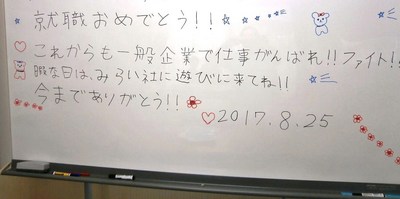 就職おめでとう!!
これからも一般企業で仕事がんばれ!!ファイト!!
暇な日は、みらい社に遊びに来てね!!
今までありがとう!!
2017.8.25